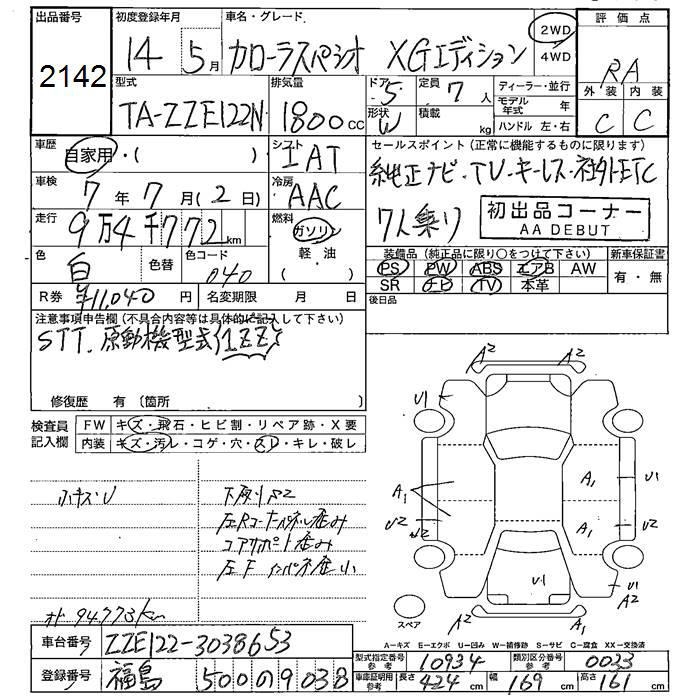 出品番号
2142
初度登録年月
14 5月
車名・グレード
カローラスパシオ XGエディション
2WD
4WD
評価点
RA
外装 内装
C C
型式
TA-ZZE122N
排気量
1800cc
ドア
5
形状
W
定員
7人
積載 kg
ディーラー・並行
モデル年式 年
ハンドル 左・右
車歴
自家用・( )
シフト
IAT
車検
7年7月(2日)
冷房
AAC
走行
9万4千772km
燃料
ガソリン
軽・油
( )
色
白
色替
色コード
040
R券 ¥11,040円
名変期限 月 日
セールスポイント(正常に機能するものに限ります)
純正ナビ・TV・キーレス・社外ETC
7人乗り
初出品コーナー
AA DEBUT
装備品(純正品に限り○をつけて下さい)
新車保証書
PS PW ABS エアB AW
SR ナビ TV 本革
有・無
後日品
注意事項申告欄(不具合内容等は具体的に記入して下さい)
STT. 原動機型式(1ZZ)
修復歴 有(箇所 )
検査員記入欄
FW キズ・飛石・ヒビ割・リペア跡・X要
内装 キズ・汚レ・コゲ・穴・スレ・キレ・破レ
小キズ・U
下廻りS2
左Rコーナーパネル歪み
コアサポート歪み
左Fインパネ歪小
オド 94773km
A2 A2
U1
A1
A1 U1
U2 W2
U2
U1
U1
A2
A2 A1
スペア
A-キズ E-エクボ U-凹み W-補修跡 S-サビ C-腐食 XX-交換済
車台番号
ZZE122-3038653
登録番号
福島 500の9038
型式指定番号 参考
10934
類別区分番号 参考
0023
車庫証明用 参考
長さ 424cm 幅 169cm 高さ 161cm